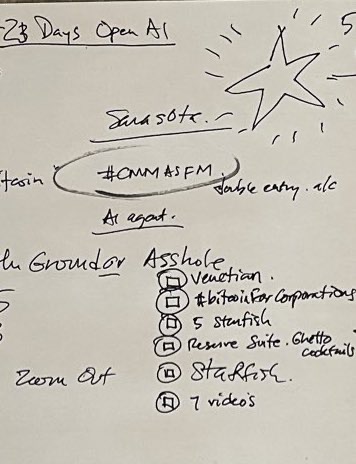 23 Days Open AI
5
Sarasota.
tcoin #CMMASFM. double entry. a/c
AI agent.
Ground or Asshole
Venetian.
#bitcoinForCorporations
5 starfish
5
Reserve Suite. Ghetto cocktails
Zoom Out
Starfish.
7 videos